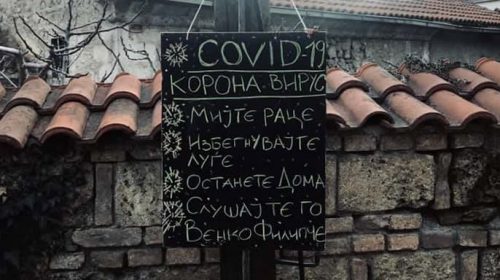 COVID-19
КОРОНА ВИРУС
МИЈТЕ РАЦЕ
ИЗБЕГНУВАЈТЕ
ЛУЃЕ
ОСТАНЕТЕ ДОМА
СЛУШАЈТЕ ГО
ВЕНКО ФИЛИПЧЕ